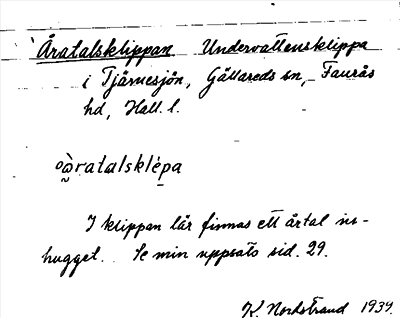 Åratalsklippan Undervattensklippa
i Tjärnesjön, Gällareds sn, Faurås
hd, Hall. l.
òratalsklépa
I klippan lär finnas ett årtal in-
hugget. Se min uppsats sid. 29.
K. Nordstrand 1934.